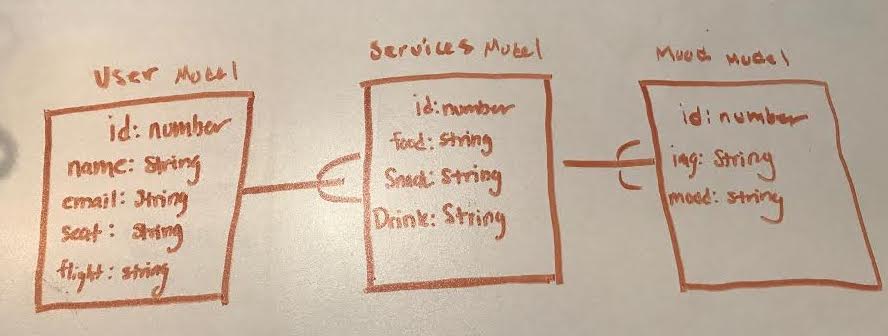 User Model
id: number
name: String
email: String
seat: String
flight: string
Services Model
id: number
food: String
Snack: String
Drink: String
Mood Model
id: number
img: String
mood: string